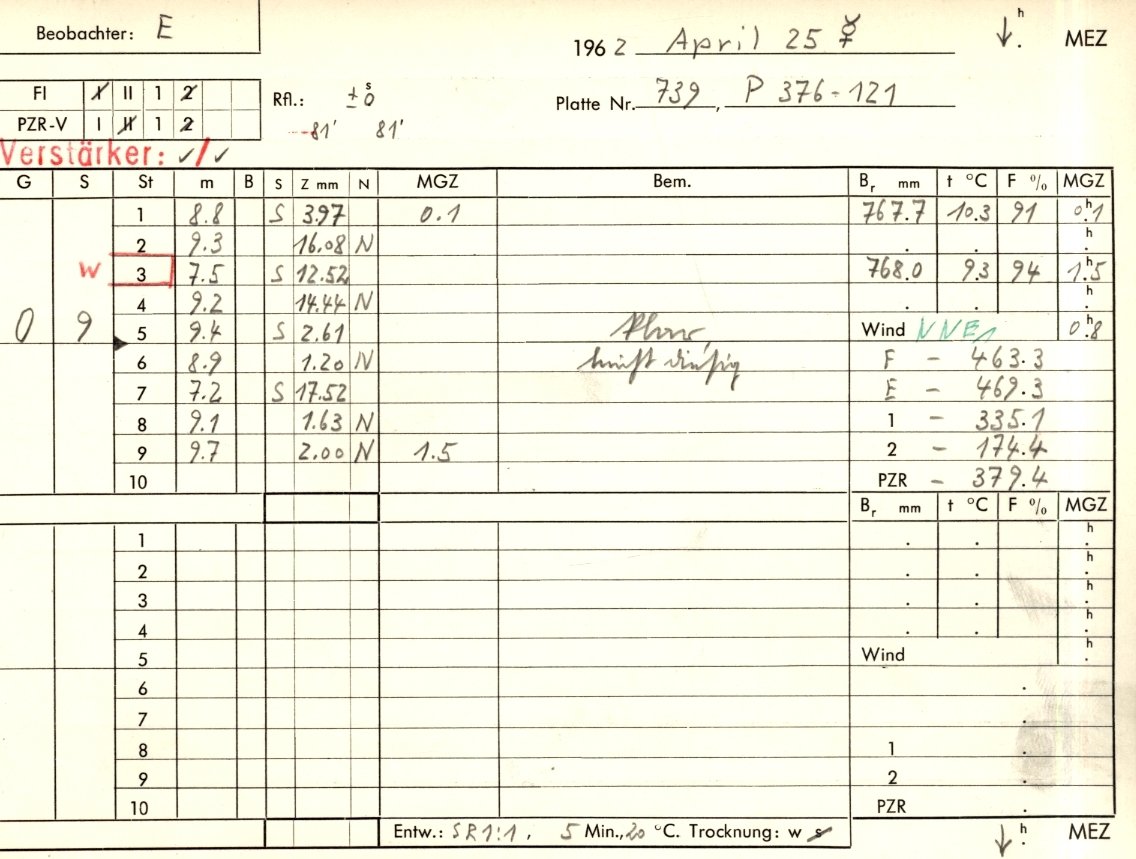 Beobachter: E
1962 April 25 ☿ ↓ . h MEZ
FI I II 1 2 Rfl.: ± 0 s Platte Nr. 739, P 376-121
PZR-V I II 1 2 -81' 81'
Verstärker: ✓/✓
G S St m B S Z mm N MGZ Bem. Br mm t °C F % MGZ
1 8.8 S 3.97 0.1 767.7 10.3 91 0.1 h
2 9.3 16.08 N . . h .
W 3 7.5 S 12.52 768.0 9.3 94 1.5 h
4 9.2 14.44 N . . h .
0 9 5 9.4 S 2.61 Wind NNE1 0.8 h
6 8.9 1.20 N F - 463.3
7 7.2 S 17.52 E - 469.3
8 9.1 1.63 N 1 - 335.1
9 9.7 2.00 N 1.5 2 - 174.4
10 PZR - 379.4
Br mm t °C F % MGZ
1 . . h .
2 . . h .
3 . . h .
4 . . h .
5 Wind h .
6 .
7 .
8 1 .
9 2 .
10 PZR .
Entw.: SR1:1, 5 Min., 20 °C. Trocknung: w s ↓ . h MEZ